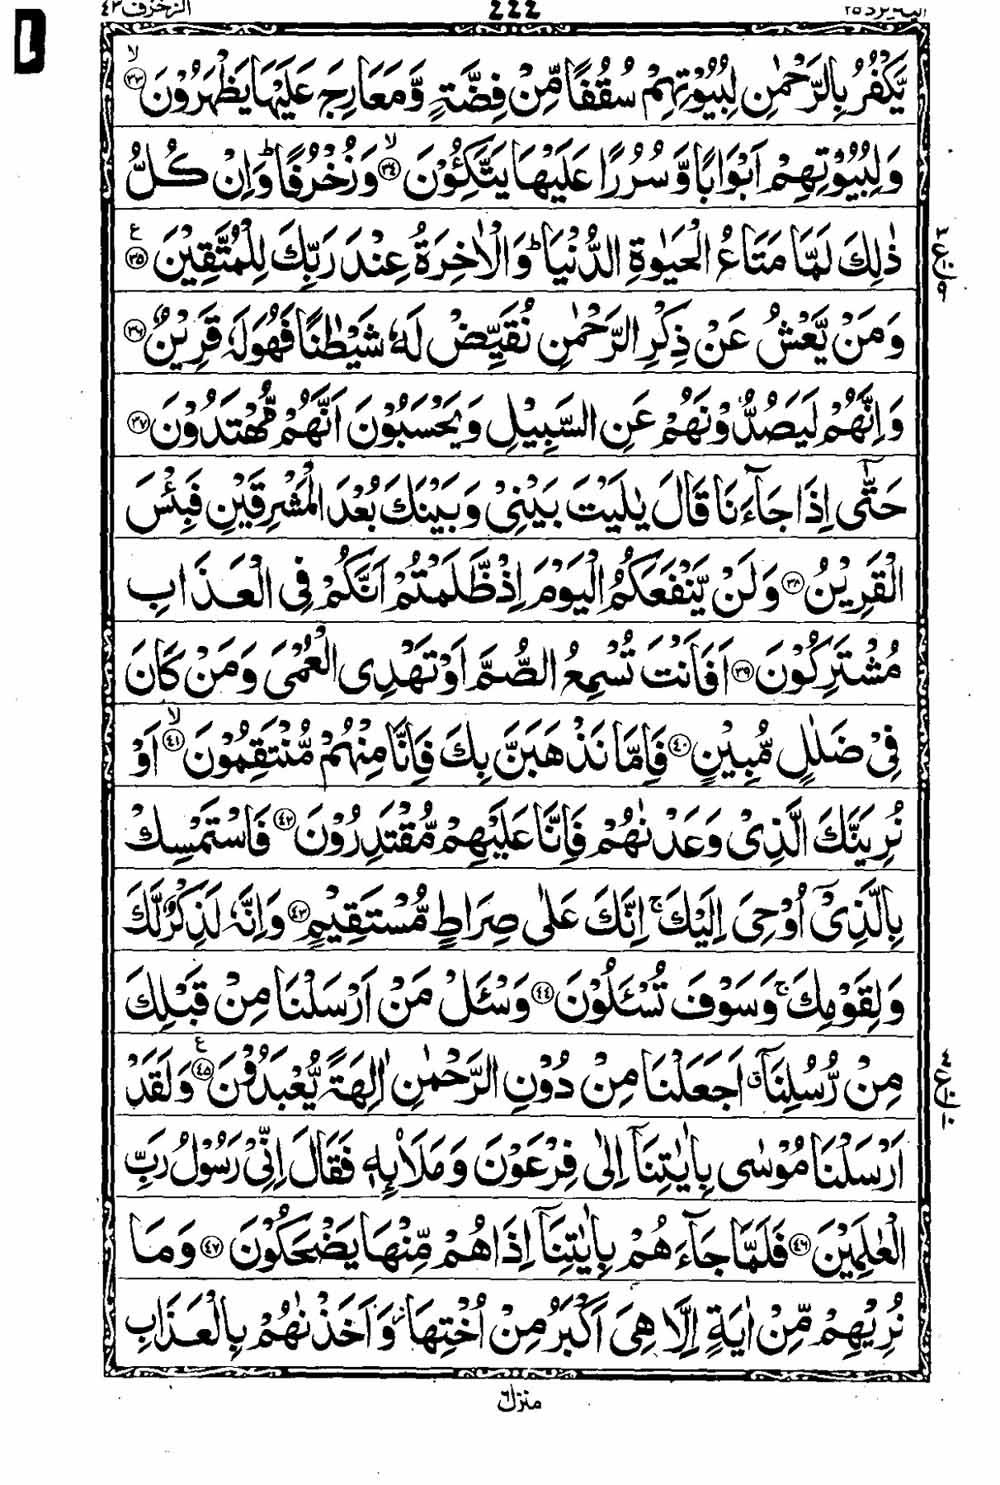 الزخرف ٤٣
يَّكْفُرُ بِالرَّحْمٰنِ لِبُيُوْتِهِمْ سُقُفًا مِّنْ فِضَّةٍ وَّمَعَارِجَ عَلَيْهَا يَظْهَرُوْنَ ۙ﴿٣٣﴾
وَلِبُيُوْتِهِمْ اَبْوَابًا وَّسُرُرًا عَلَيْهَا يَتَّكِئُوْنَ ۙ﴿٣٤﴾ وَزُخْرُفًا ؕ وَاِنْ كُلُّ
ذٰلِكَ لَمَّا مَتَاعُ الْحَيٰوةِ الدُّنْيَا ؕ وَالْاٰخِرَةُ عِنْدَ رَبِّكَ لِلْمُتَّقِيْنَ ﴿٣٥﴾ ع
وَمَنْ يَّعْشُ عَنْ ذِكْرِ الرَّحْمٰنِ نُقَيِّضْ لَهٗ شَيْطٰنًا فَهُوَ لَهٗ قَرِيْنٌ ﴿٣٦﴾
وَاِنَّهُمْ لَيَصُدُّوْنَهُمْ عَنِ السَّبِيْلِ وَيَحْسَبُوْنَ اَنَّهُمْ مُّهْتَدُوْنَ ﴿٣٧﴾
حَتّٰٓى اِذَا جَآءَنَا قَالَ يٰلَيْتَ بَيْنِيْ وَبَيْنَكَ بُعْدَ الْمَشْرِقَيْنِ فَبِئْسَ
الْقَرِيْنُ ﴿٣٨﴾ وَلَنْ يَّنْفَعَكُمُ الْيَوْمَ اِذْ ظَّلَمْتُمْ اَنَّكُمْ فِي الْعَذَابِ
مُشْتَرِكُوْنَ ﴿٣٩﴾ اَفَاَنْتَ تُسْمِعُ الصُّمَّ اَوْ تَهْدِى الْعُمْىَ وَمَنْ كَانَ
فِيْ ضَلٰلٍ مُّبِيْنٍ ﴿٤٠﴾ فَاِمَّا نَذْهَبَنَّ بِكَ فَاِنَّا مِنْهُمْ مُّنْتَقِمُوْنَ ۙ﴿٤١﴾ اَوْ
نُرِيَنَّكَ الَّذِيْ وَعَدْنٰهُمْ فَاِنَّا عَلَيْهِمْ مُّقْتَدِرُوْنَ ﴿٤٢﴾ فَاسْتَمْسِكْ
بِالَّذِيْٓ اُوْحِيَ اِلَيْكَ ۚ اِنَّكَ عَلٰى صِرَاطٍ مُّسْتَقِيْمٍ ﴿٤٣﴾ وَاِنَّهٗ لَذِكْرٌ لَّكَ
وَلِقَوْمِكَ ۚ وَسَوْفَ تُسْئَلُوْنَ ﴿٤٤﴾ وَسْئَلْ مَنْ اَرْسَلْنَا مِنْ قَبْلِكَ
مِنْ رُّسُلِنَآ ق اَجَعَلْنَا مِنْ دُوْنِ الرَّحْمٰنِ اٰلِهَةً يُّعْبَدُوْنَ ﴿٤٥﴾ ع وَلَقَدْ
اَرْسَلْنَا مُوْسٰى بِاٰيٰتِنَآ اِلٰى فِرْعَوْنَ وَمَلَا۟ئِهٖ فَقَالَ اِنِّيْ رَسُوْلُ رَبِّ
الْعٰلَمِيْنَ ﴿٤٦﴾ فَلَمَّا جَآءَهُمْ بِاٰيٰتِنَآ اِذَا هُمْ مِّنْهَا يَضْحَكُوْنَ ﴿٤٧﴾ وَمَا
نُرِيْهِمْ مِّنْ اٰيَةٍ اِلَّا هِيَ اَكْبَرُ مِنْ اُخْتِهَا ۡ وَاَخَذْنٰهُمْ بِالْعَذَابِ
منزل ٦